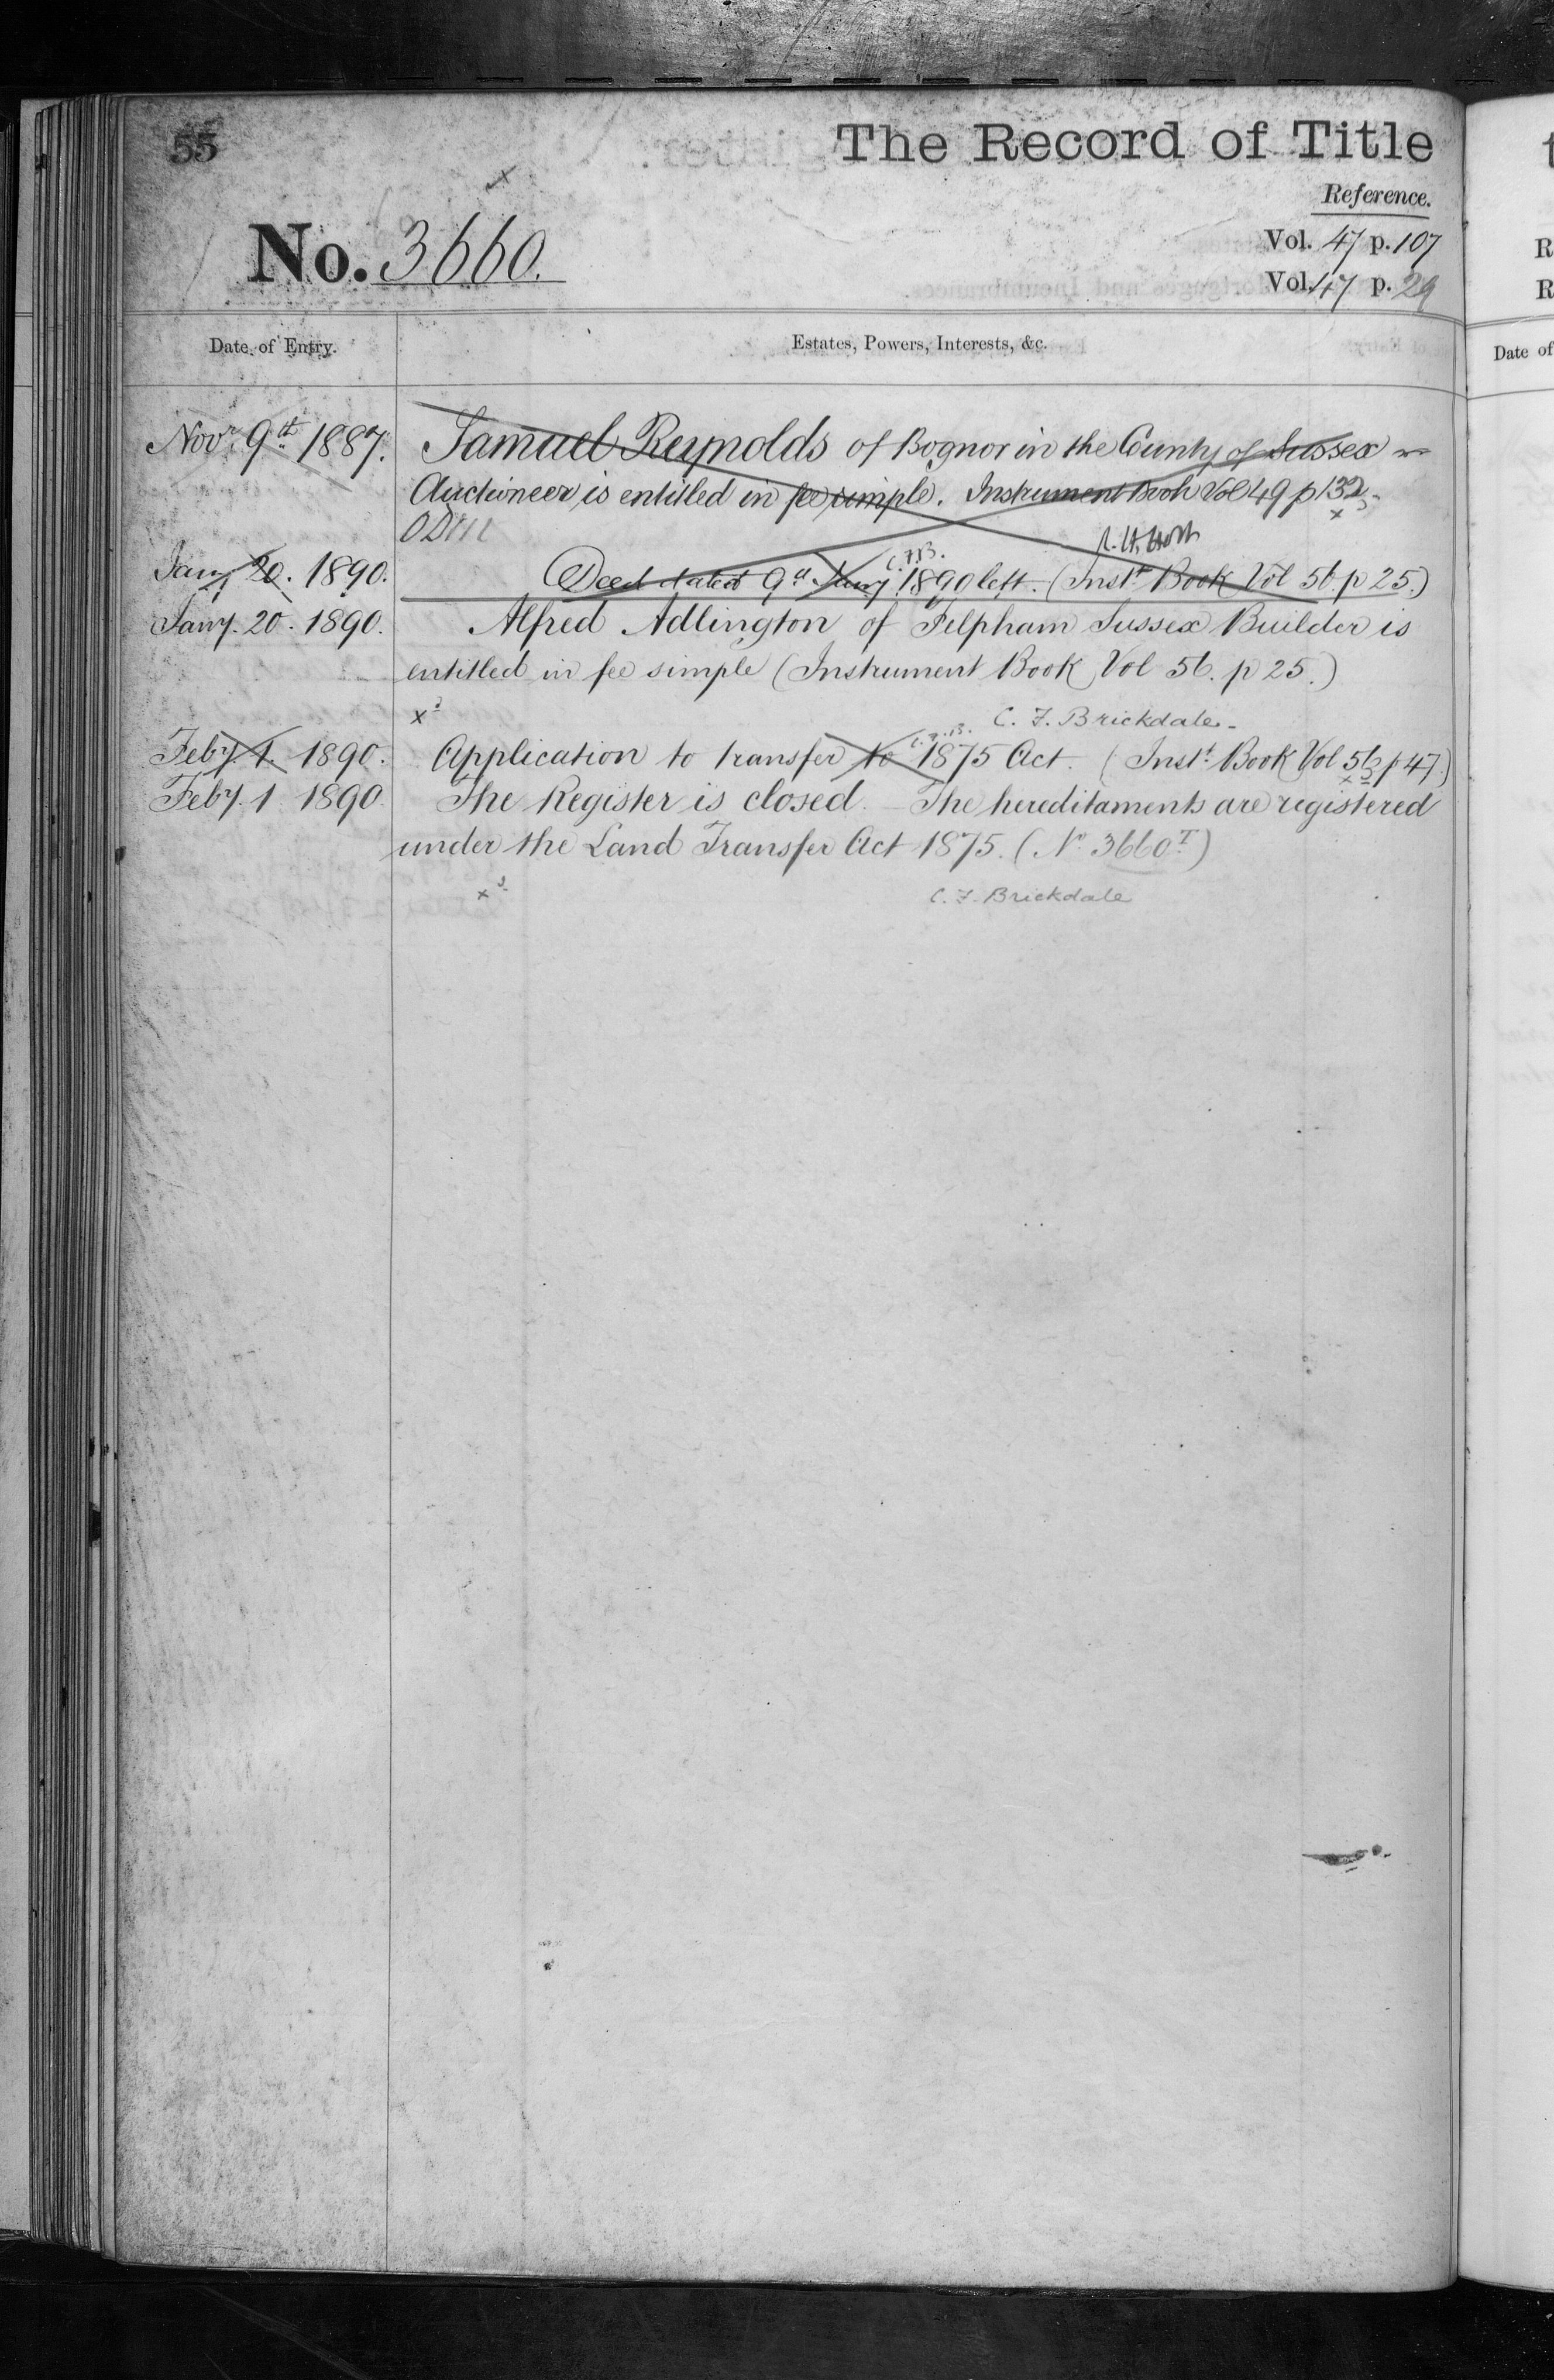 55
The Record of Title
Reference.
No. 3660.
Vol. 47 p. 107
Vol. 47 p. 29
Date of Entry.
Estates, Powers, Interests, &c.
Novr. 9th 1887. Samuel Reynolds of Bognor in the County of Sussex
Auctioneer is entitled in fee simple. Instrument Book Vol 49 p 132
C.F.B.
Jany 20. 1890. Deed dated 9th Jany 1890 left. (Instt. Book Vol 56. p 25.)
Jany. 20. 1890. Alfred Adlington of Felpham Sussex Builder is
entitled in fee simple (Instrument Book Vol 56. p 25.)
C. F. Brickdale
C.F.B.
Feby 1. 1890. Application to transfer to 1875 Act. (Instt. Book Vol 56 p 47.)
Feby. 1 1890. The Register is closed. The hereditaments are registered
under the Land Transfer Act 1875. (No 3660T)
C. F. Brickdale
Date of